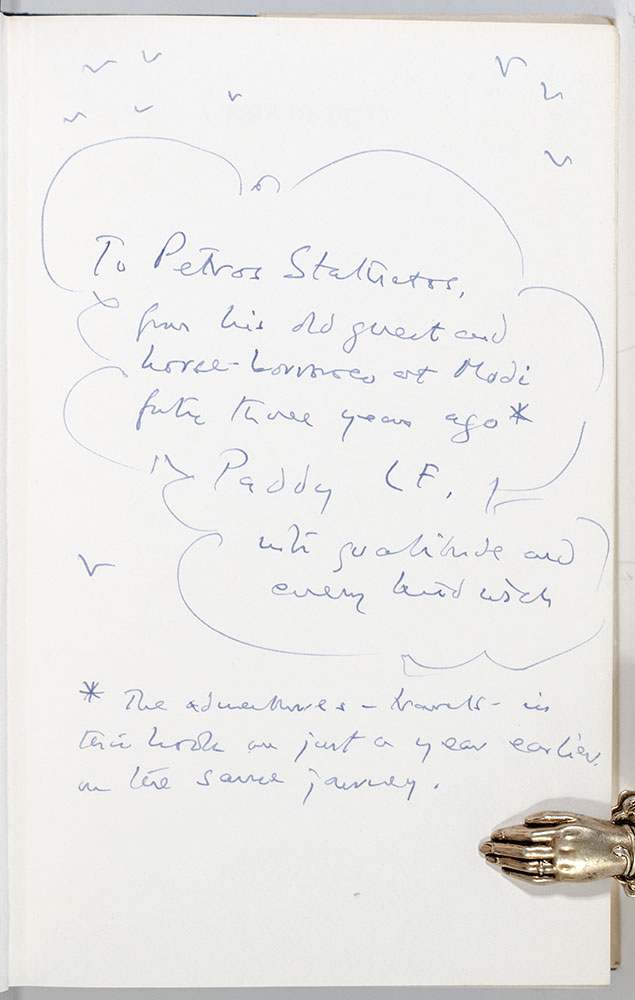 To Petros Stathatos,
from his old guest and
horse-borrower at Modi
fifty three years ago*
Paddy LF.
with gratitude and
every kind wish
* The adventures - travels - in
this book are just a year earlier,
on the same journey.